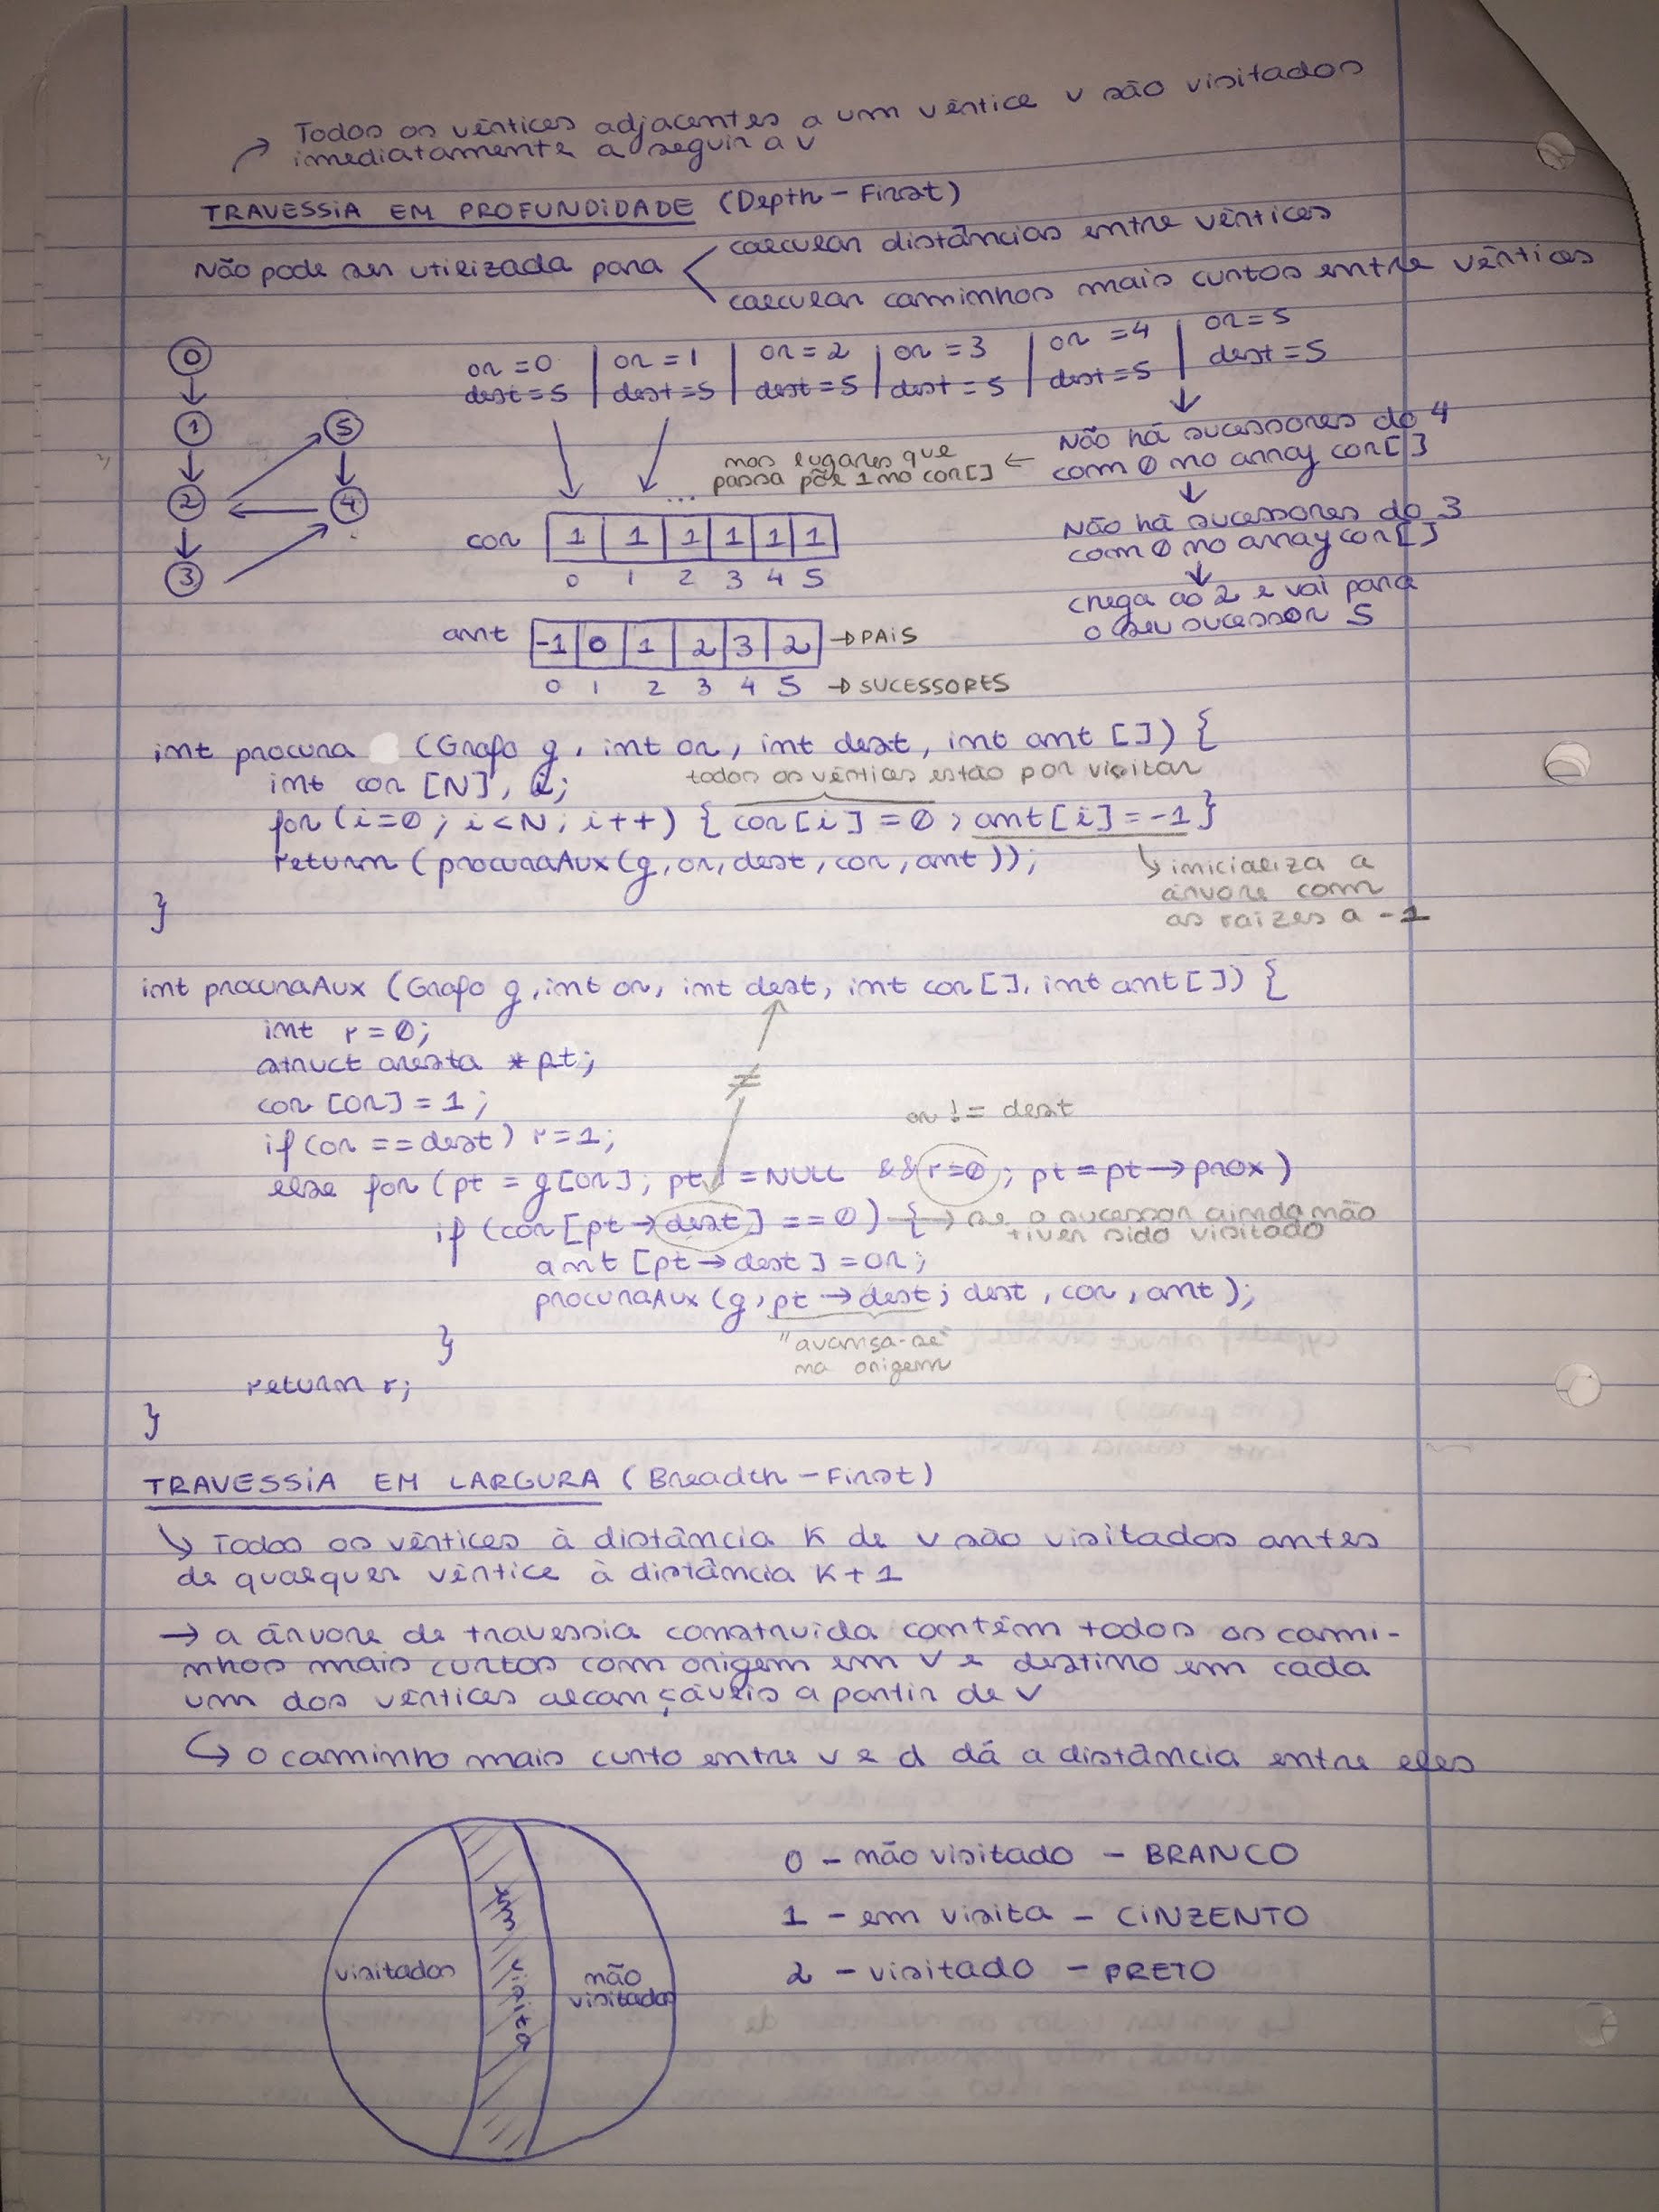 Todos os vértices adjacentes a um vértice v são visitados
imediatamente a seguir a v
TRAVESSIA EM PROFUNDIDADE (Depth-First)
Não pode ser utilizada para
calcular distâncias entre vértices
calcular caminhos mais curtos entre vértices
or=0 | or=1 | or=2 | or=3 | or=4 | or=5
dest=5 | dest=5 | dest=5 | dest=5 | dest=5 | dest=5
0
1
5
2
4
3
...
nos lugares que
passa põe 1 no cor[]
Não há sucessores do 4
com 0 no array cor[]
Não há sucessores do 3
com 0 no array cor[]
chega ao 2 e vai para
o seu sucessor 5
cor 1 1 1 1 1 1
0 1 2 3 4 5
ant -1 0 1 2 3 2 → PAIS
0 1 2 3 4 5 → SUCESSORES
int procura (Grafo g, int or, int dest, int ant []) {
int cor [N], i;
todos os vértices estão por visitar
for (i=0; i<N; i++) { cor[i]=0; ant[i]=-1 }
return (procuraAux(g, or, dest, cor, ant));
inicializa a
árvore com
as raízes a -1
}
int procuraAux (Grafo g, int or, int dest, int cor[], int ant[]) {
int r=0;
struct aresta *pt;
cor [or] = 1;
≠
or != dest
if (or == dest) r=1;
else for (pt = g[or]; pt != NULL && r=0; pt = pt→prox)
if (cor [pt→dest] == 0) { → se o sucessor ainda não
tiver sido visitado
ant [pt→dest] = or;
procuraAux (g, pt→dest; dest, cor, ant);
"avança-se"
na origem
}
return r;
}
TRAVESSIA EM LARGURA (Breadth-First)
↳ Todos os vértices à distância K de v são visitados antes
de qualquer vértice à distância K+1
→ a árvore de travessia construída contém todos os cami-
nhos mais curtos com origem em v e destino em cada
um dos vértices alcançáveis a partir de v
↳ o caminho mais curto entre v e d dá a distância entre eles
visitados
em visita
não
visitados
0 - não visitado - BRANCO
1 - em visita - CINZENTO
2 - visitado - PRETO